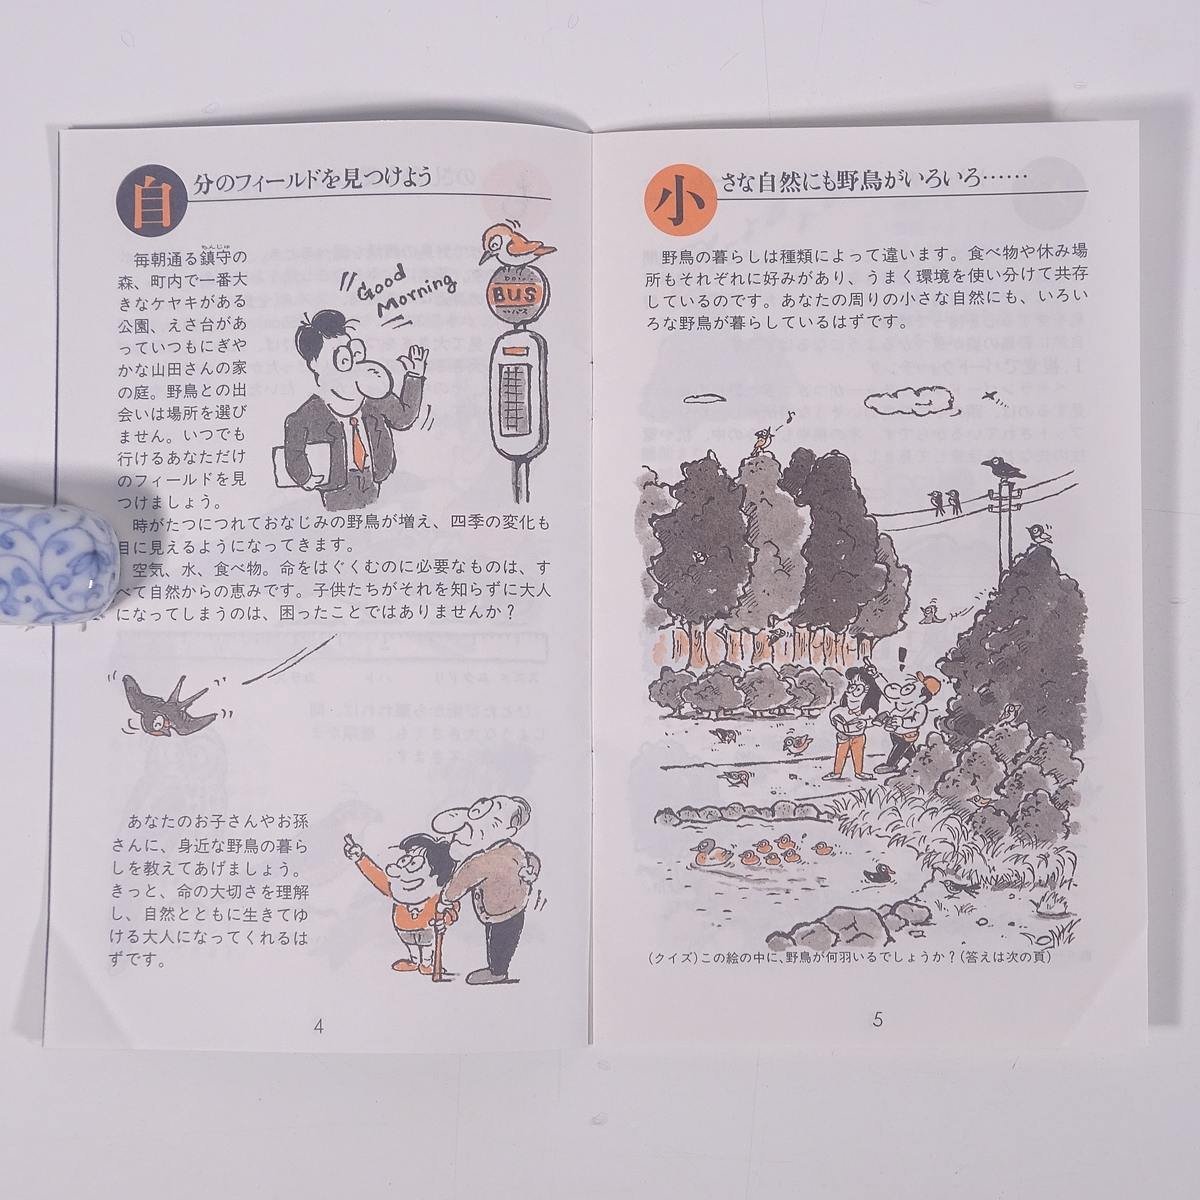 自分のフィールドを見つけよう
ちんじゅ
毎朝通る鎮守の
森、町内で一番大
きなケヤキがある
公園、えさ台があ
っていつもにぎや
かな山田さんの家
の庭。野鳥との出
会いは場所を選び
ません。いつでも
行けるあなただけ
のフィールドを見
つけましょう。
Good
Morning
BUS
バス
時がたつにつれておなじみの野鳥が増え、四季の変化も
目に見えるようになってきます。
空気、水、食べ物。命をはぐくむのに必要なものは、す
べて自然からの恵みです。子供たちがそれを知らずに大人
になってしまうのは、困ったことではありませんか？
あなたのお子さんやお孫
さんに、身近な野鳥の暮ら
しを教えてあげましょう。
きっと、命の大切さを理解
し、自然とともに生きてゆ
ける大人になってくれるは
ずです。
4
小さな自然にも野鳥がいろいろ……
野鳥の暮らしは種類によって違います。食べ物や休み場
所もそれぞれに好みがあり、うまく環境を使い分けて共存
しているのです。あなたの周りの小さな自然にも、いろい
ろな野鳥が暮らしているはずです。
！
(クイズ)この絵の中に、野鳥が何羽いるでしょうか？(答えは次の頁)
5